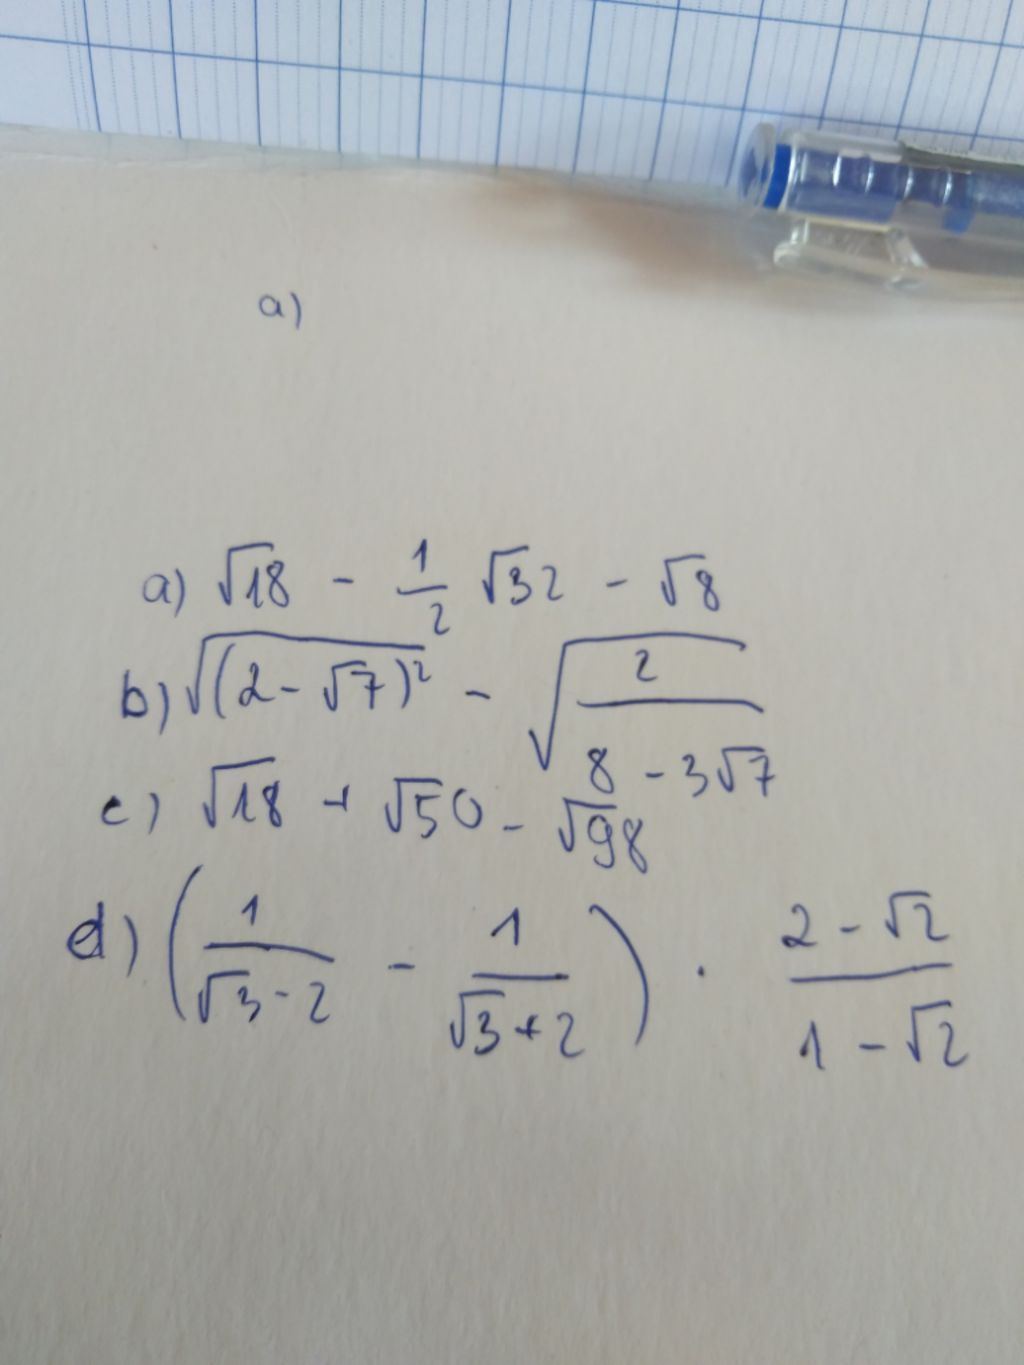 a)
a) √18 - 1/2 √32 - √8
b) √((2-√7)²) - √(2/(8-3√7))
c) √18 + √50 - √98
d) (1/(√3-2) - 1/(√3+2)) · (2-√2)/(1-√2)